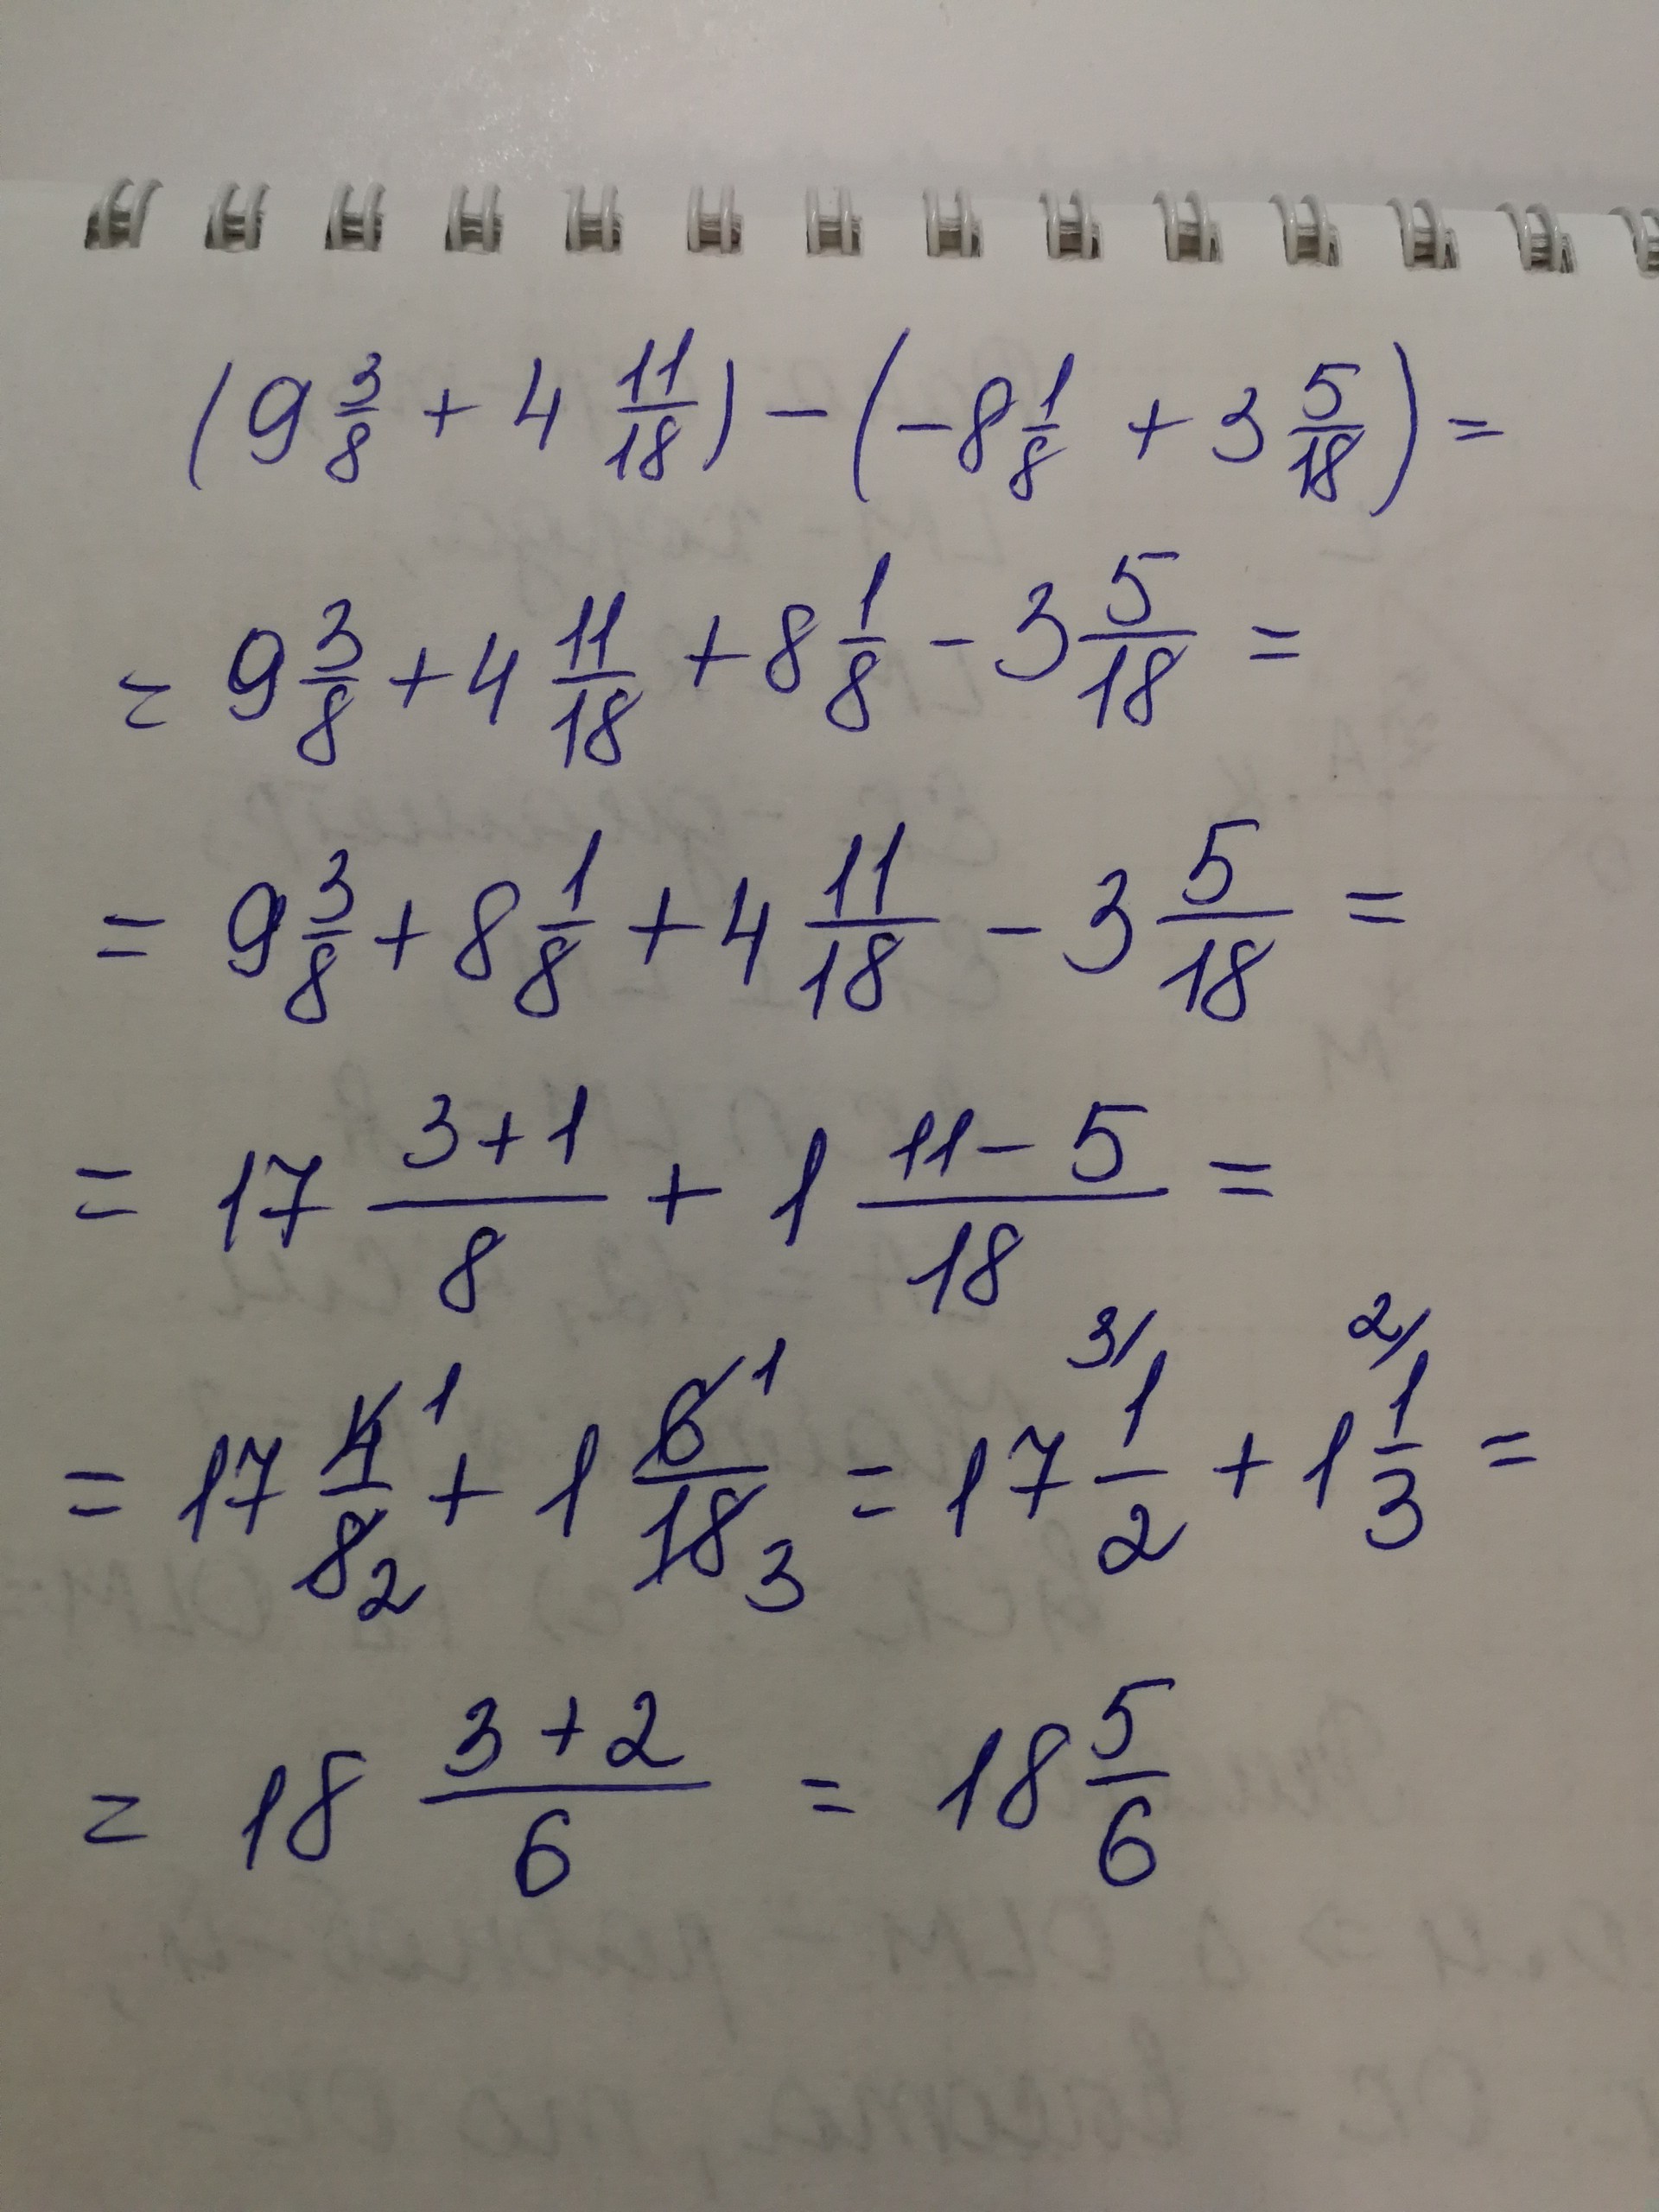 (9 3/8 + 4 11/18) - (-8 1/8 + 3 5/18) =
= 9 3/8 + 4 11/18 + 8 1/8 - 3 5/18 =
= 9 3/8 + 8 1/8 + 4 11/18 - 3 5/18 =
= 17 (3+1)/8 + 1 (11-5)/18 =
3/ 2/
= 17 4/8 1 2 + 1 6/18 1 3 = 17 1/2 + 1 1/3 =
= 18 (3+2)/6 = 18 5/6